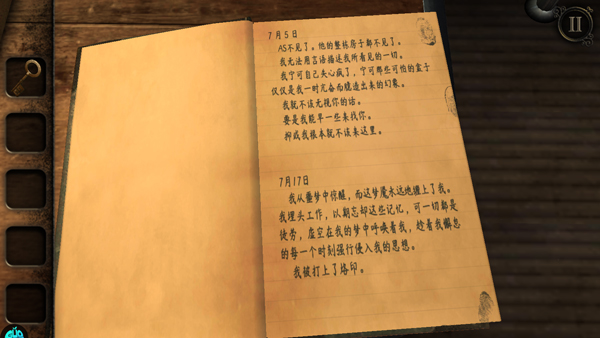 7月5日
AS不见了。他的整栋房子都不见了。
我无法用言语描述我所看见的一切。
我宁可自己失心疯了，宁可那些可怕的盒子
仅仅是我一时亢奋而臆造出来的幻象。
我就不该无视你的话。
要是我能早一些来找你。
抑或我根本就不该来这里。
7月17日
我从噩梦中惊醒，而这梦魇永远地缠上了我。
我埋头工作，以期忘却这些记忆，可一切都是
徒劳，虚空在我的梦中呼唤着我，趁着我懈怠
的每一个时刻强行侵入我的思想。
我被打上了烙印。